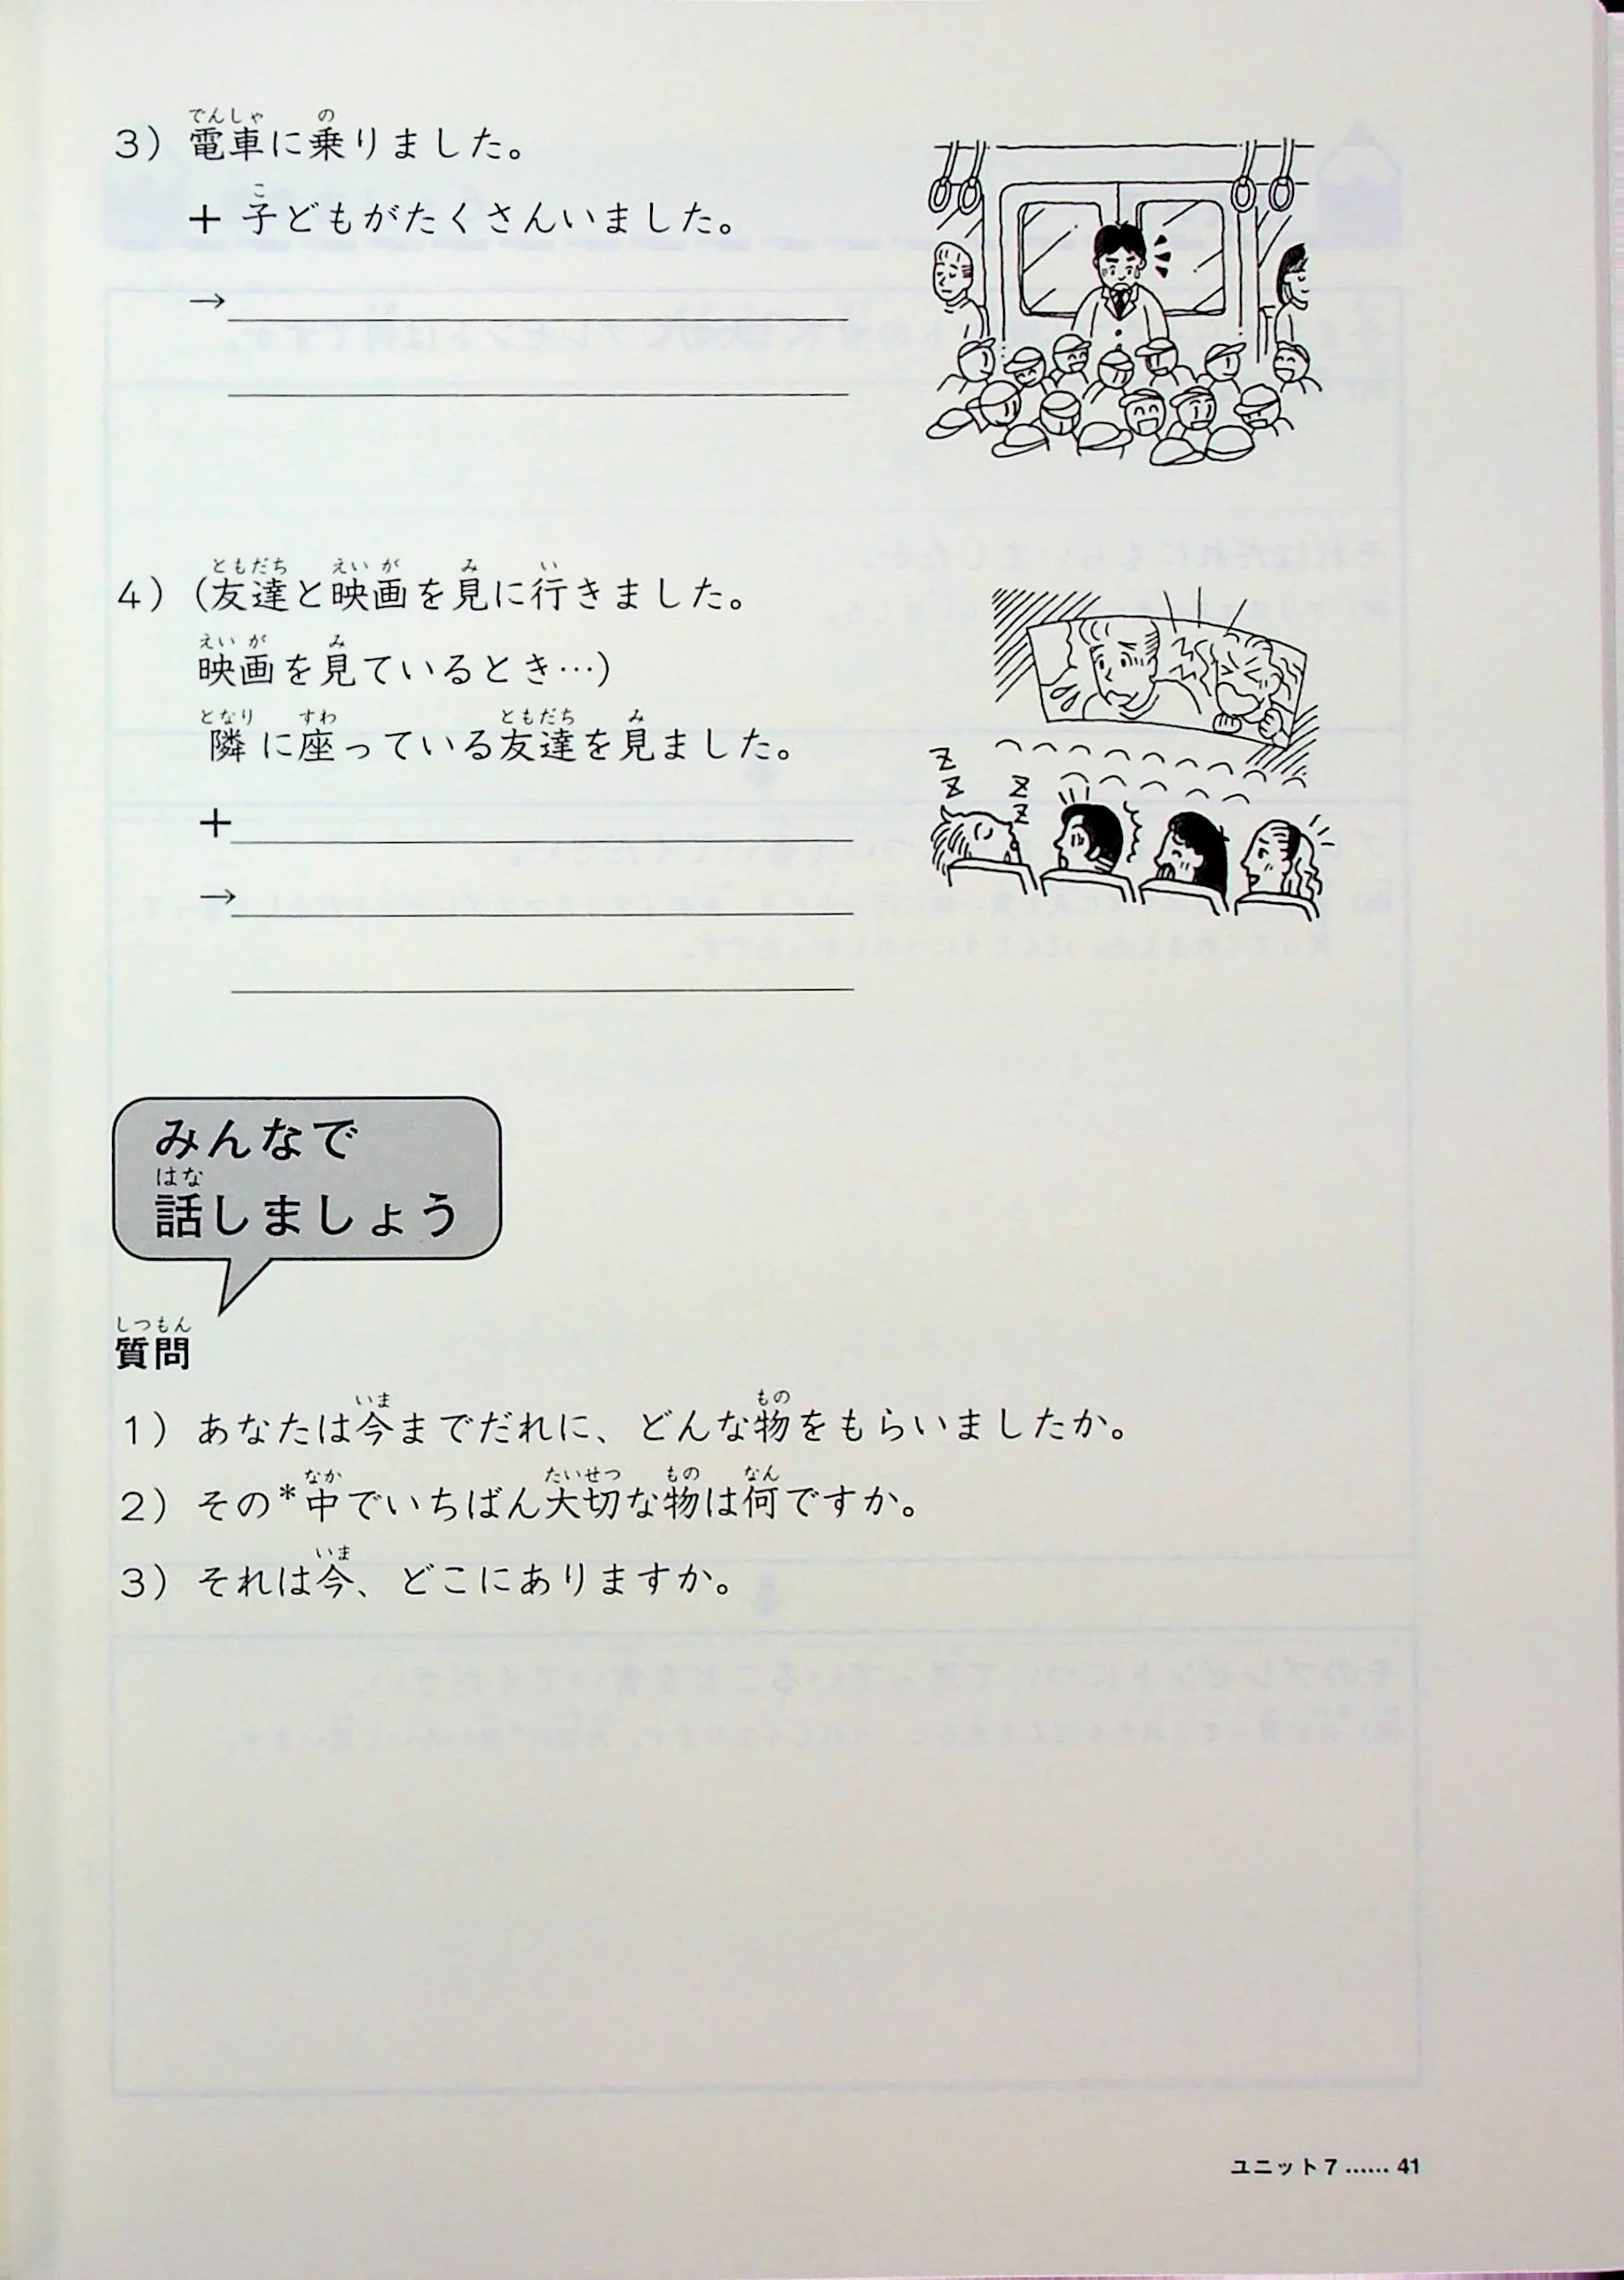 3）電車に乗りました。
でんしゃ の
＋ 子どもがたくさんいました。
こ
→
4）（友達と映画を見に行きました。
ともだち えいが み い
映画を見ているとき…）
えいが み
隣に座っている友達を見ました。
となり すわ ともだち み
＋
→
z
z
z
z
みんなで
話しましょう
はな
質問
しつもん
1）あなたは今までだれに、どんな物をもらいましたか。
いま もの
2）その*中でいちばん大切な物は何ですか。
なか たいせつ もの なん
3）それは今、どこにありますか。
いま
ユニット7……41